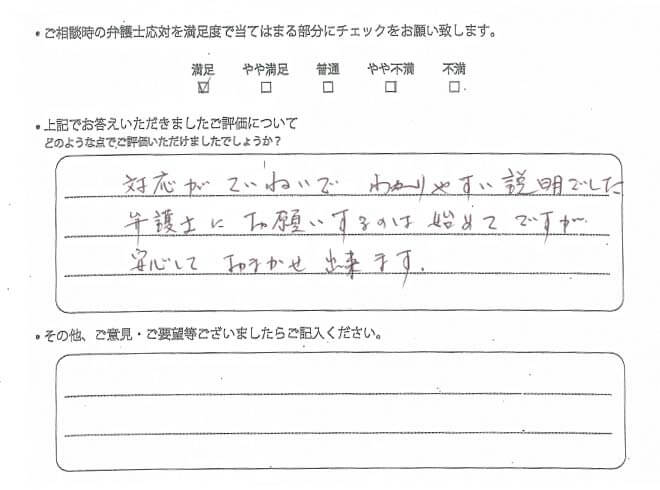 ・ご相談時の弁護士応対を満足度で当てはまる部分にチェックをお願い致します。
満足 やや満足 普通 やや不満 不満
☑ □ □ □ □
・上記でお答えいただきましたご評価について
どのような点でご評価いただけましたでしょうか？
対応がていねいで わかりやすい説明でした
弁護士にお願いするのは始めてですが
安心して おまかせ出来ます.
・その他、ご意見・ご要望等ございましたらご記入ください。